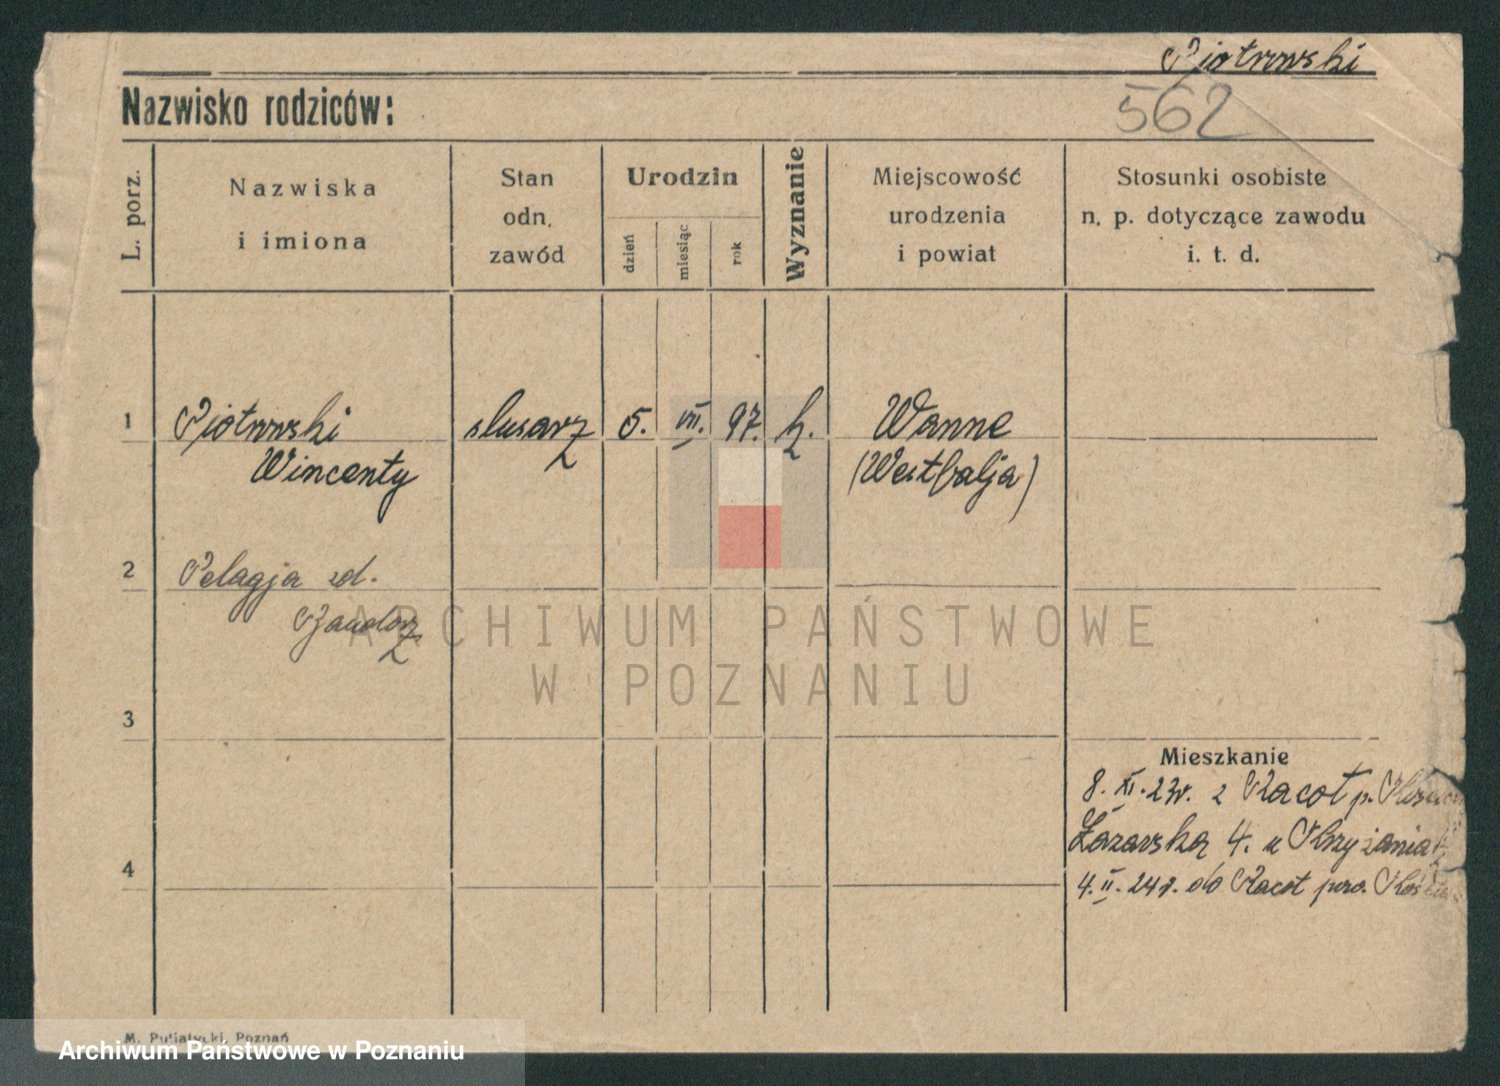 Piotrowski
562
Nazwisko rodziców:
L. porz.
Nazwiska
i imiona
Stan
odn.
zawód
Urodzin
dzień
miesiąc
rok
Wyznanie
Miejscowość
urodzenia
i powiat
Stosunki osobiste
n. p. dotyczące zawodu
i. t. d.
1 Piotrowski ślusarz 5. VII. 97. k. Wanne
Wincenty (Westfalja)
2 Pelagja zd.
3
Mieszkanie
8. XI. 23r. z Racot p.
Łazarska 4. u
4
4. II. 24r. do Racot pow.
M. Putiatycki, Poznań
ARCHIWUM PAŃSTWOWE
W POZNANIU
Archiwum Państwowe w Poznaniu